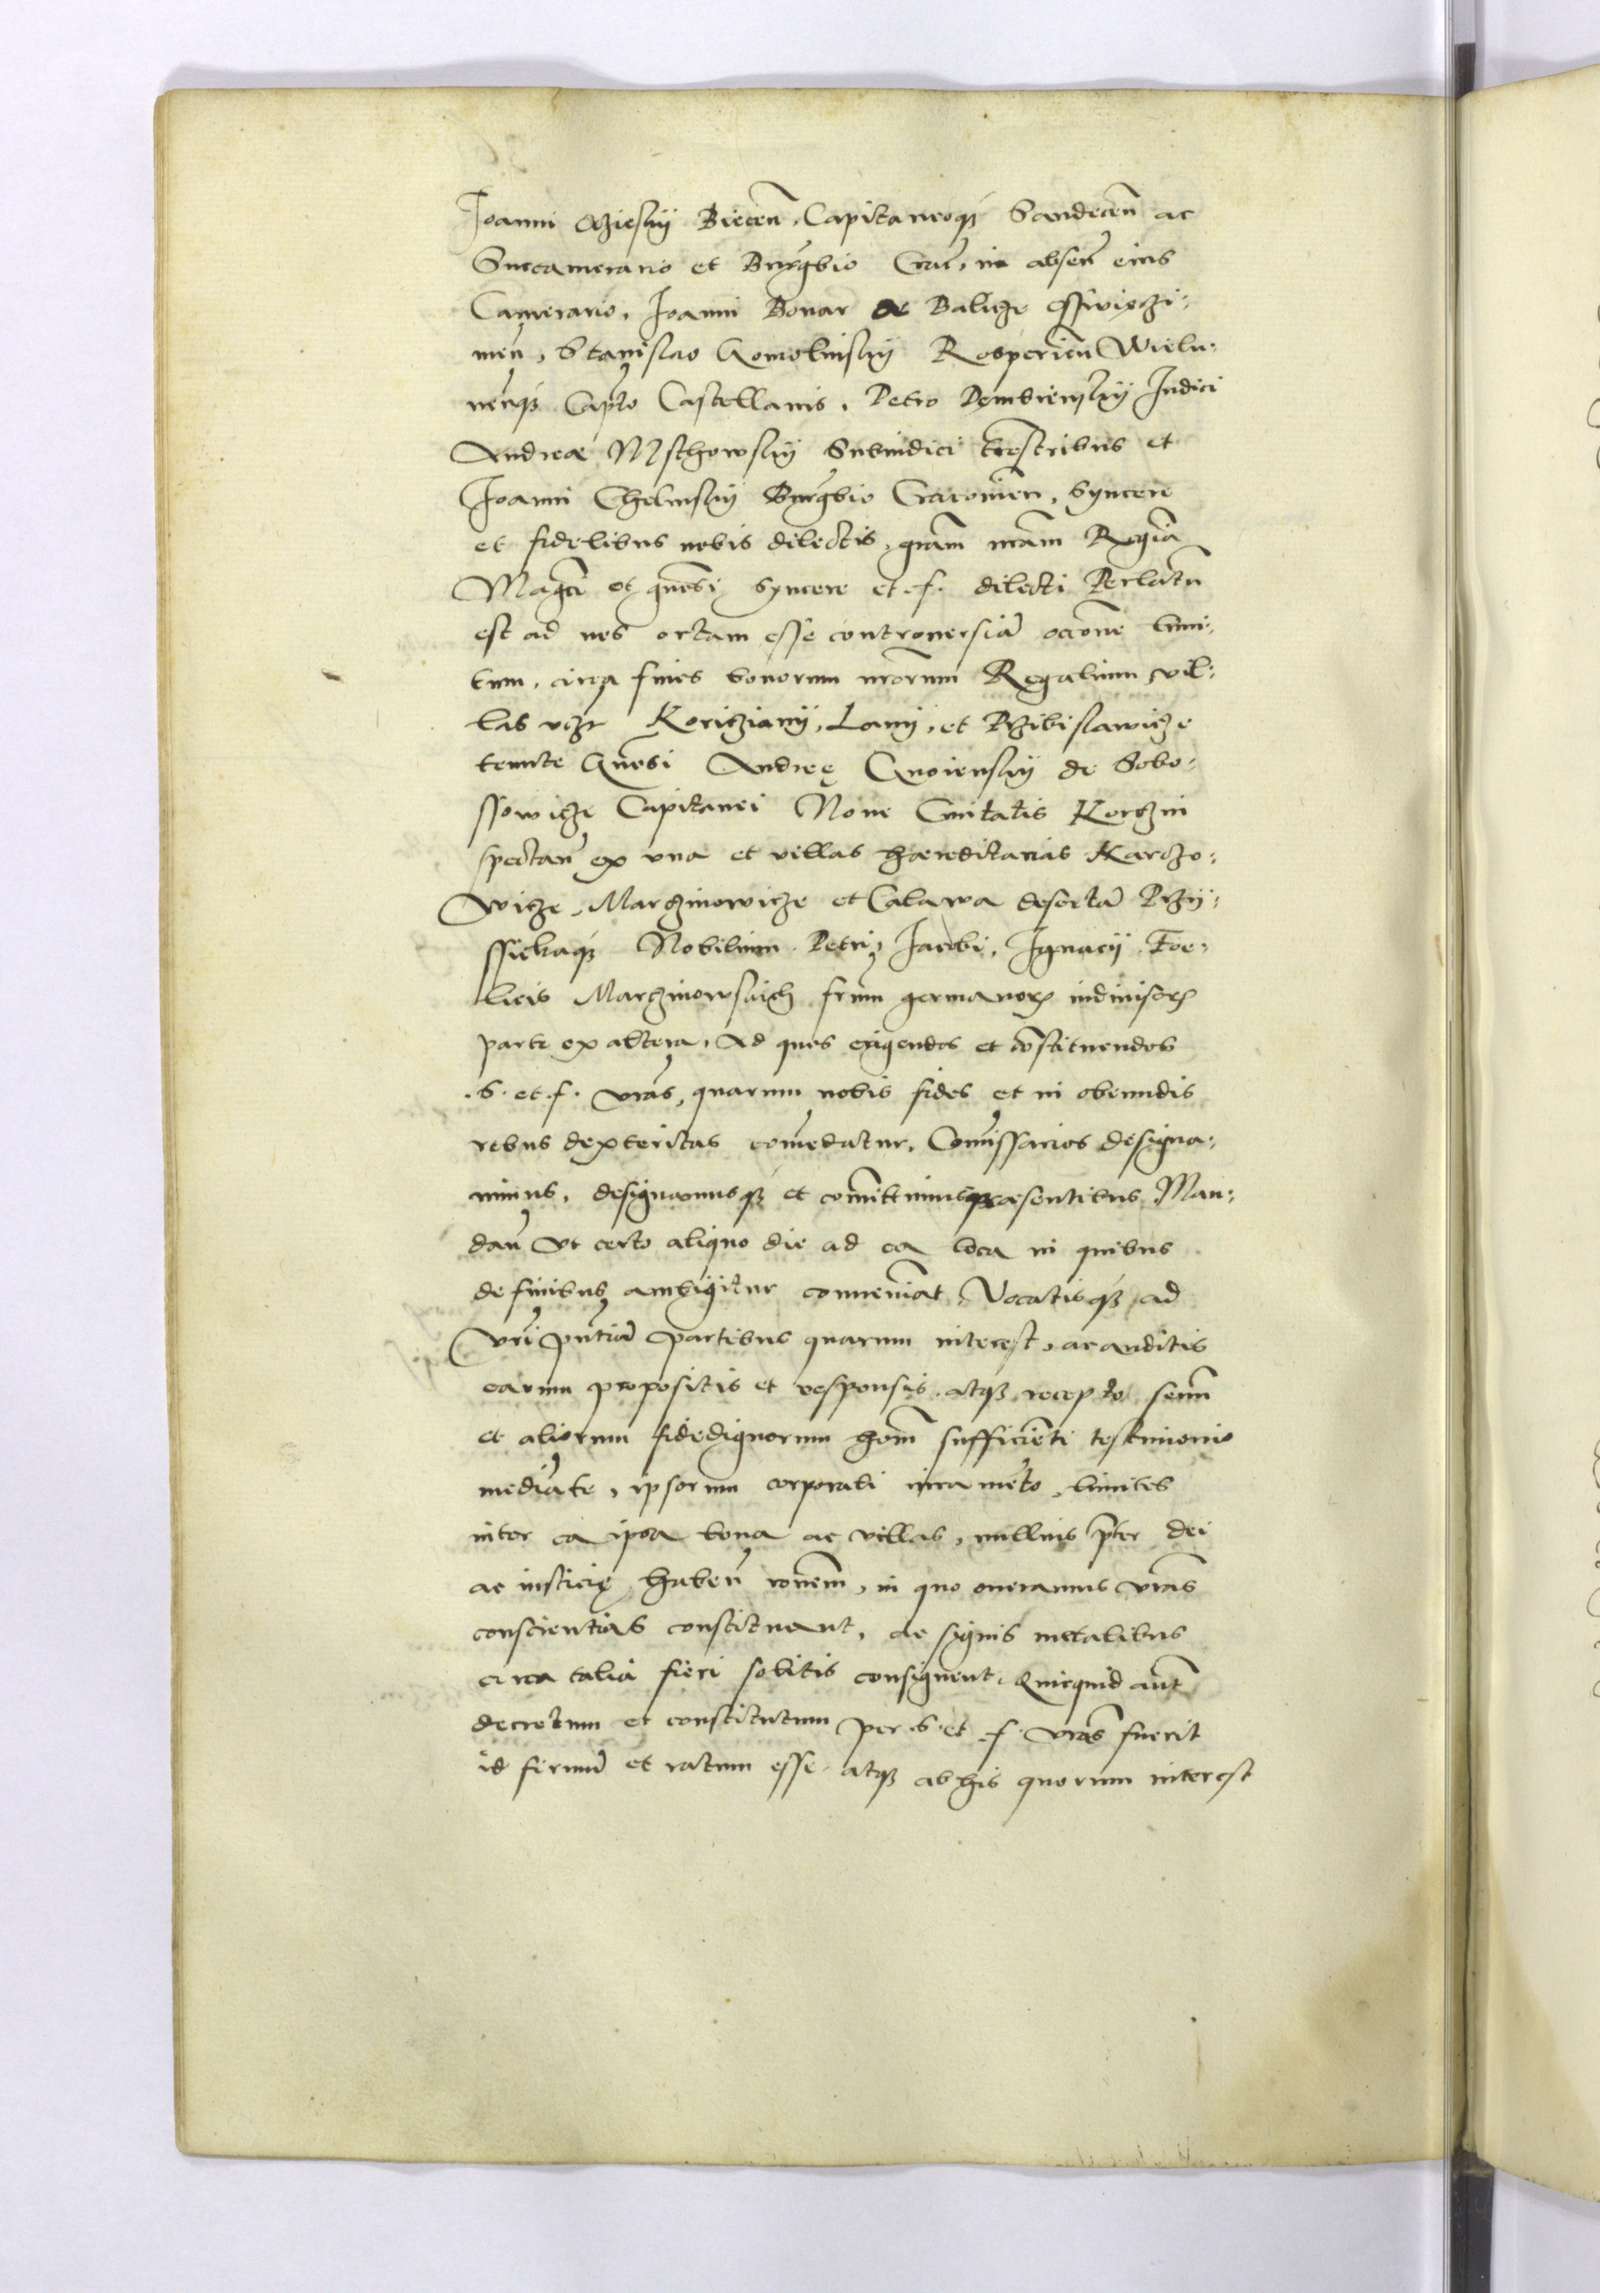 Joanni Ocziesky Biecen̄. Capitaneoq́ꝫ Sandecen̄ ac
Succamerario et Burgbio Crac̄, in absen̄ eius
Camerario, Joanni Bonar de Balicze Osswieczi-
men̄, Stanislao Komolinsky Rosperien̄ Wielu-
nen̄qꝫ Capto Castellanis, Petro Dembiensky Judici
Andreæ Mschowsky Subiudici trēstribus et
Joanni Chelmsky Burgbio Cracouien̄, Syncere
et fidelibus nobis dilectis, grām nrām Regiā
Magci et gn̄osi syncere et .f. dilecti Perlatū
est ad nos ortam esse controuersiā occōne limi-
tum, circa fines bonorum nrōrum Regalium vil-
las vcz Koricziany, Lany, et Przibislawicze
tenutæ Gn̄osi Andreę Gnoiensky de Sobo-
ssowicze Capitanei Noue Ciuitatis Korczin
spectan̄ ex vna et villas hæreditarias Karczo-
wicze, Marczinowicze et Calawa desertā Przy-
ssiekaq́ꝫ Nobilium Petri, Jacobi, Ignacij Foe-
licis Marczinowskich frūm germanorꝝ indiuisorꝝ
parte ex altera, Ad quos erigendos et cōstituendos
.S. et .f. vrās, quarum nobis fides et in obeundis
rebus dexteritas comēdatur, Comīssarios designa-
uimus, designamusqꝫ et comīttimus præsentibus Man-
dan̄ Vt certo aliquo die ad ea loca in quibus
de finibus ambigitur conueniāt, Vocatisq́ꝫ ad
vrī pn̄tiā partibus quarum interest, ac auditis
earum propositis et responsis, atqꝫ recepto senū
et aliorum fidedignorum homī sufficiēti testimonio
mediāte, ipsorum corporali iuramēto, limites
inter ea ipsa bona ac villas, nullius p̄ter dei
ac iusticię haben̄ rōnem, in quo oneramus vrās
conscientias constituant, ac signis metalibus
circa talia fieri solitis consignent. Quicquid aut̄
decretum et constitutum per .S. et .f. vrās fuerit
id firmū et ratum esse atqꝫ ab his quorum interest